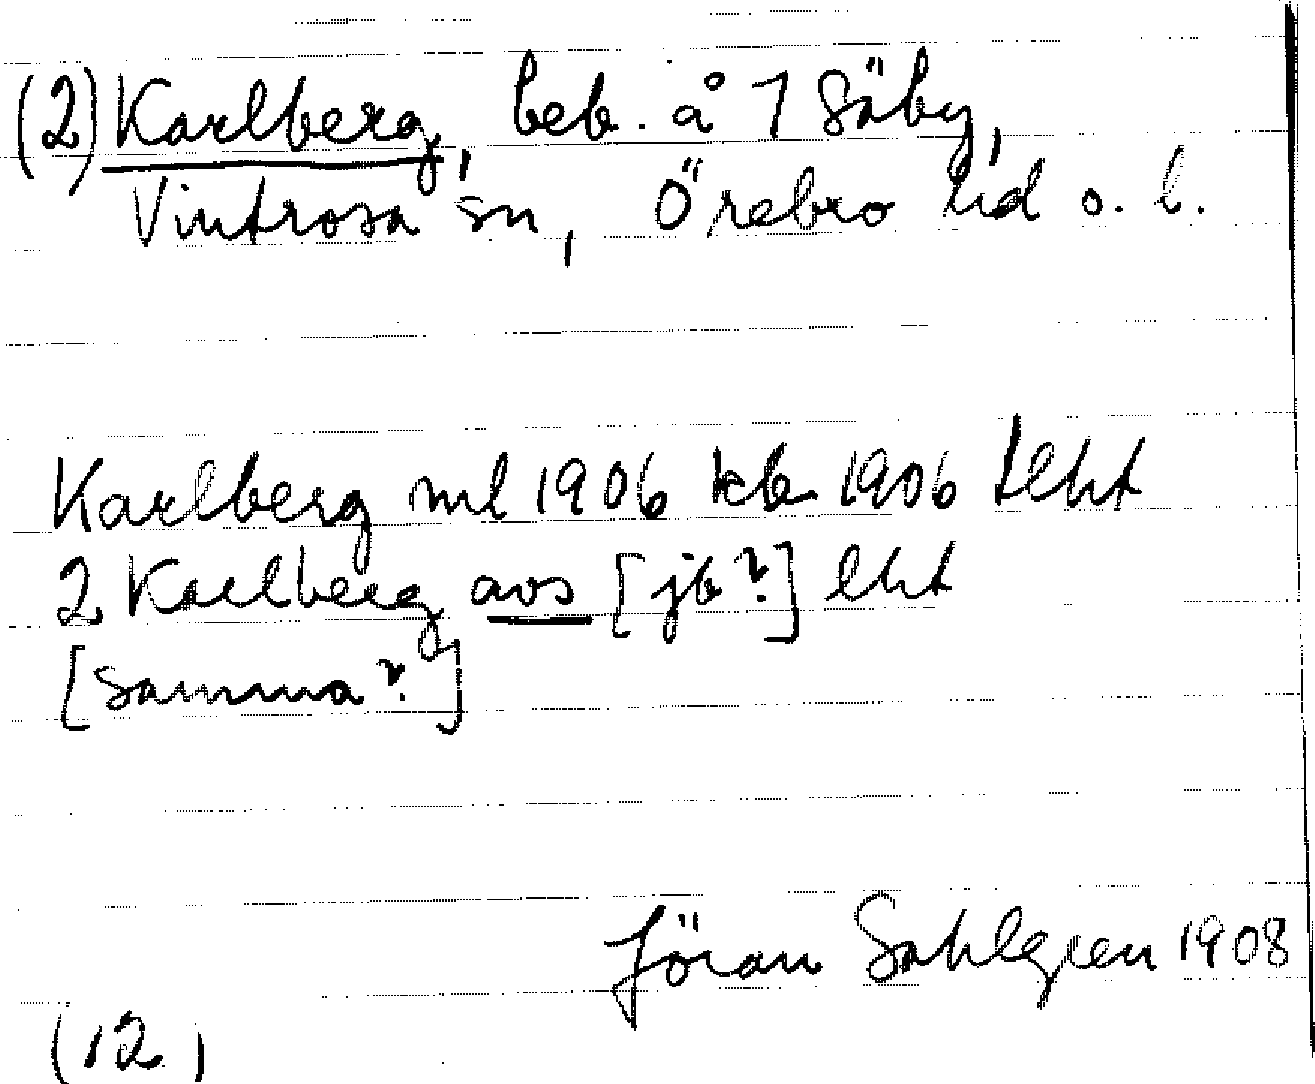 (2) Karlberg, beb. å 7 Säby,
Vintrosa sn, Örebro hd o. l.
Karlberg ml 1906 kb 1906 tlht
2 Karlberg avs [jb?] lht
[samma?]
Jöran Sahlgren 1908
(12)